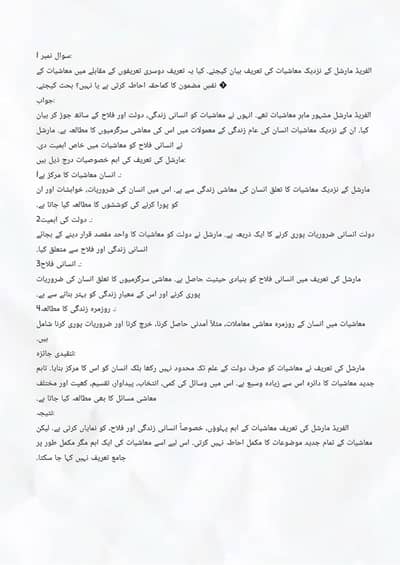 سوال نمبر 1:
الفریڈ مارشل کے نزدیک معاشیات کی تعریف بیان کیجئے۔ کیا یہ تعریف دوسری تعریفوں کے مقابلے میں معاشیات کے
� نفسِ مضمون کا کماحقہ احاطہ کرتی ہے یا نہیں؟ بحث کیجئے۔
جواب:
الفریڈ مارشل مشہور ماہرِ معاشیات تھے۔ انہوں نے معاشیات کو انسانی زندگی، دولت اور فلاح کے ساتھ جوڑ کر بیان
کیا۔ ان کے نزدیک معاشیات انسان کی عام زندگی کے معمولات میں اس کی معاشی سرگرمیوں کا مطالعہ ہے۔ مارشل
نے انسانی فلاح کو معاشیات میں خاص اہمیت دی۔
مارشل کی تعریف کی اہم خصوصیات درج ذیل ہیں:
1۔ انسان معاشیات کا مرکز ہے
مارشل کے نزدیک معاشیات کا تعلق انسان کی معاشی زندگی سے ہے۔ اس میں انسان کی ضروریات، خواہشات اور ان
کو پورا کرنے کی کوششوں کا مطالعہ کیا جاتا ہے۔
2۔ دولت کی اہمیت
دولت انسانی ضروریات پوری کرنے کا ایک ذریعہ ہے۔ مارشل نے دولت کو معاشیات کا واحد مقصد قرار دینے کے بجائے
انسانی زندگی اور فلاح سے متعلق کیا۔
3۔ انسانی فلاح
مارشل کی تعریف میں انسانی فلاح کو بنیادی حیثیت حاصل ہے۔ معاشی سرگرمیوں کا تعلق انسان کی ضروریات
پوری کرنے اور اس کے معیارِ زندگی کو بہتر بنانے سے ہے۔
4۔ روزمرہ زندگی کا مطالعہ
معاشیات میں انسان کے روزمرہ معاشی معاملات، مثلاً آمدنی حاصل کرنا، خرچ کرنا اور ضروریات پوری کرنا شامل
ہیں۔
تنقیدی جائزہ:
مارشل کی تعریف نے معاشیات کو صرف دولت کے علم تک محدود نہیں رکھا بلکہ انسان کو اس کا مرکز بنایا۔ تاہم
جدید معاشیات کا دائرہ اس سے زیادہ وسیع ہے۔ اس میں وسائل کی کمی، انتخاب، پیداوار، تقسیم، کھپت اور مختلف
معاشی مسائل کا بھی مطالعہ کیا جاتا ہے۔
نتیجہ:
الفریڈ مارشل کی تعریف معاشیات کے اہم پہلوؤں، خصوصاً انسانی زندگی اور فلاح، کو نمایاں کرتی ہے۔ لیکن
معاشیات کے تمام جدید موضوعات کا مکمل احاطہ نہیں کرتی۔ اس لیے اسے معاشیات کی ایک اہم مگر مکمل طور پر
جامع تعریف نہیں کہا جا سکتا۔